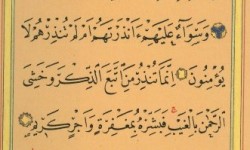 وَسَوَآءٌ عَلَيْهِمْ ءَاَنْذَرْتَهُمْ اَمْ لَمْ تُنْذِرْهُمْ لَا
يُؤْمِنُونَ ۞ اِنَّمَا تُنْذِرُ مَنِ اتَّبَعَ الذِّكْرَ وَخَشِىَ
الرَّحْمٰنَ بِالْغَيْبِ فَبَشِّرْهُ بِمَغْفِرَةٍ وَاَجْرٍ كَرِيمٍ